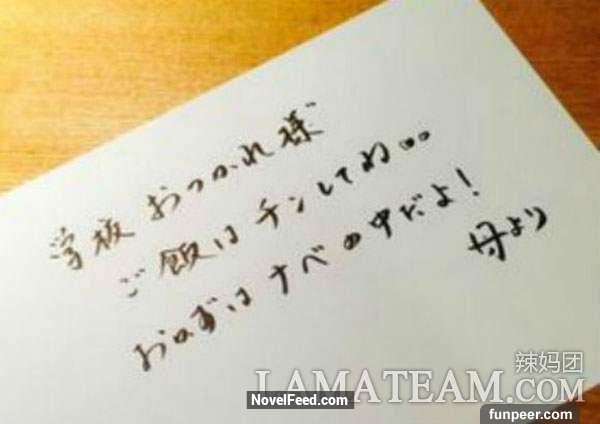 学板 おつかれ様
ご飯は チンしてね。。
おかずは ナベの中だよ!
母より
辣妈团
LAMATEAM.COM
NovelFeed.com
funpeer.com